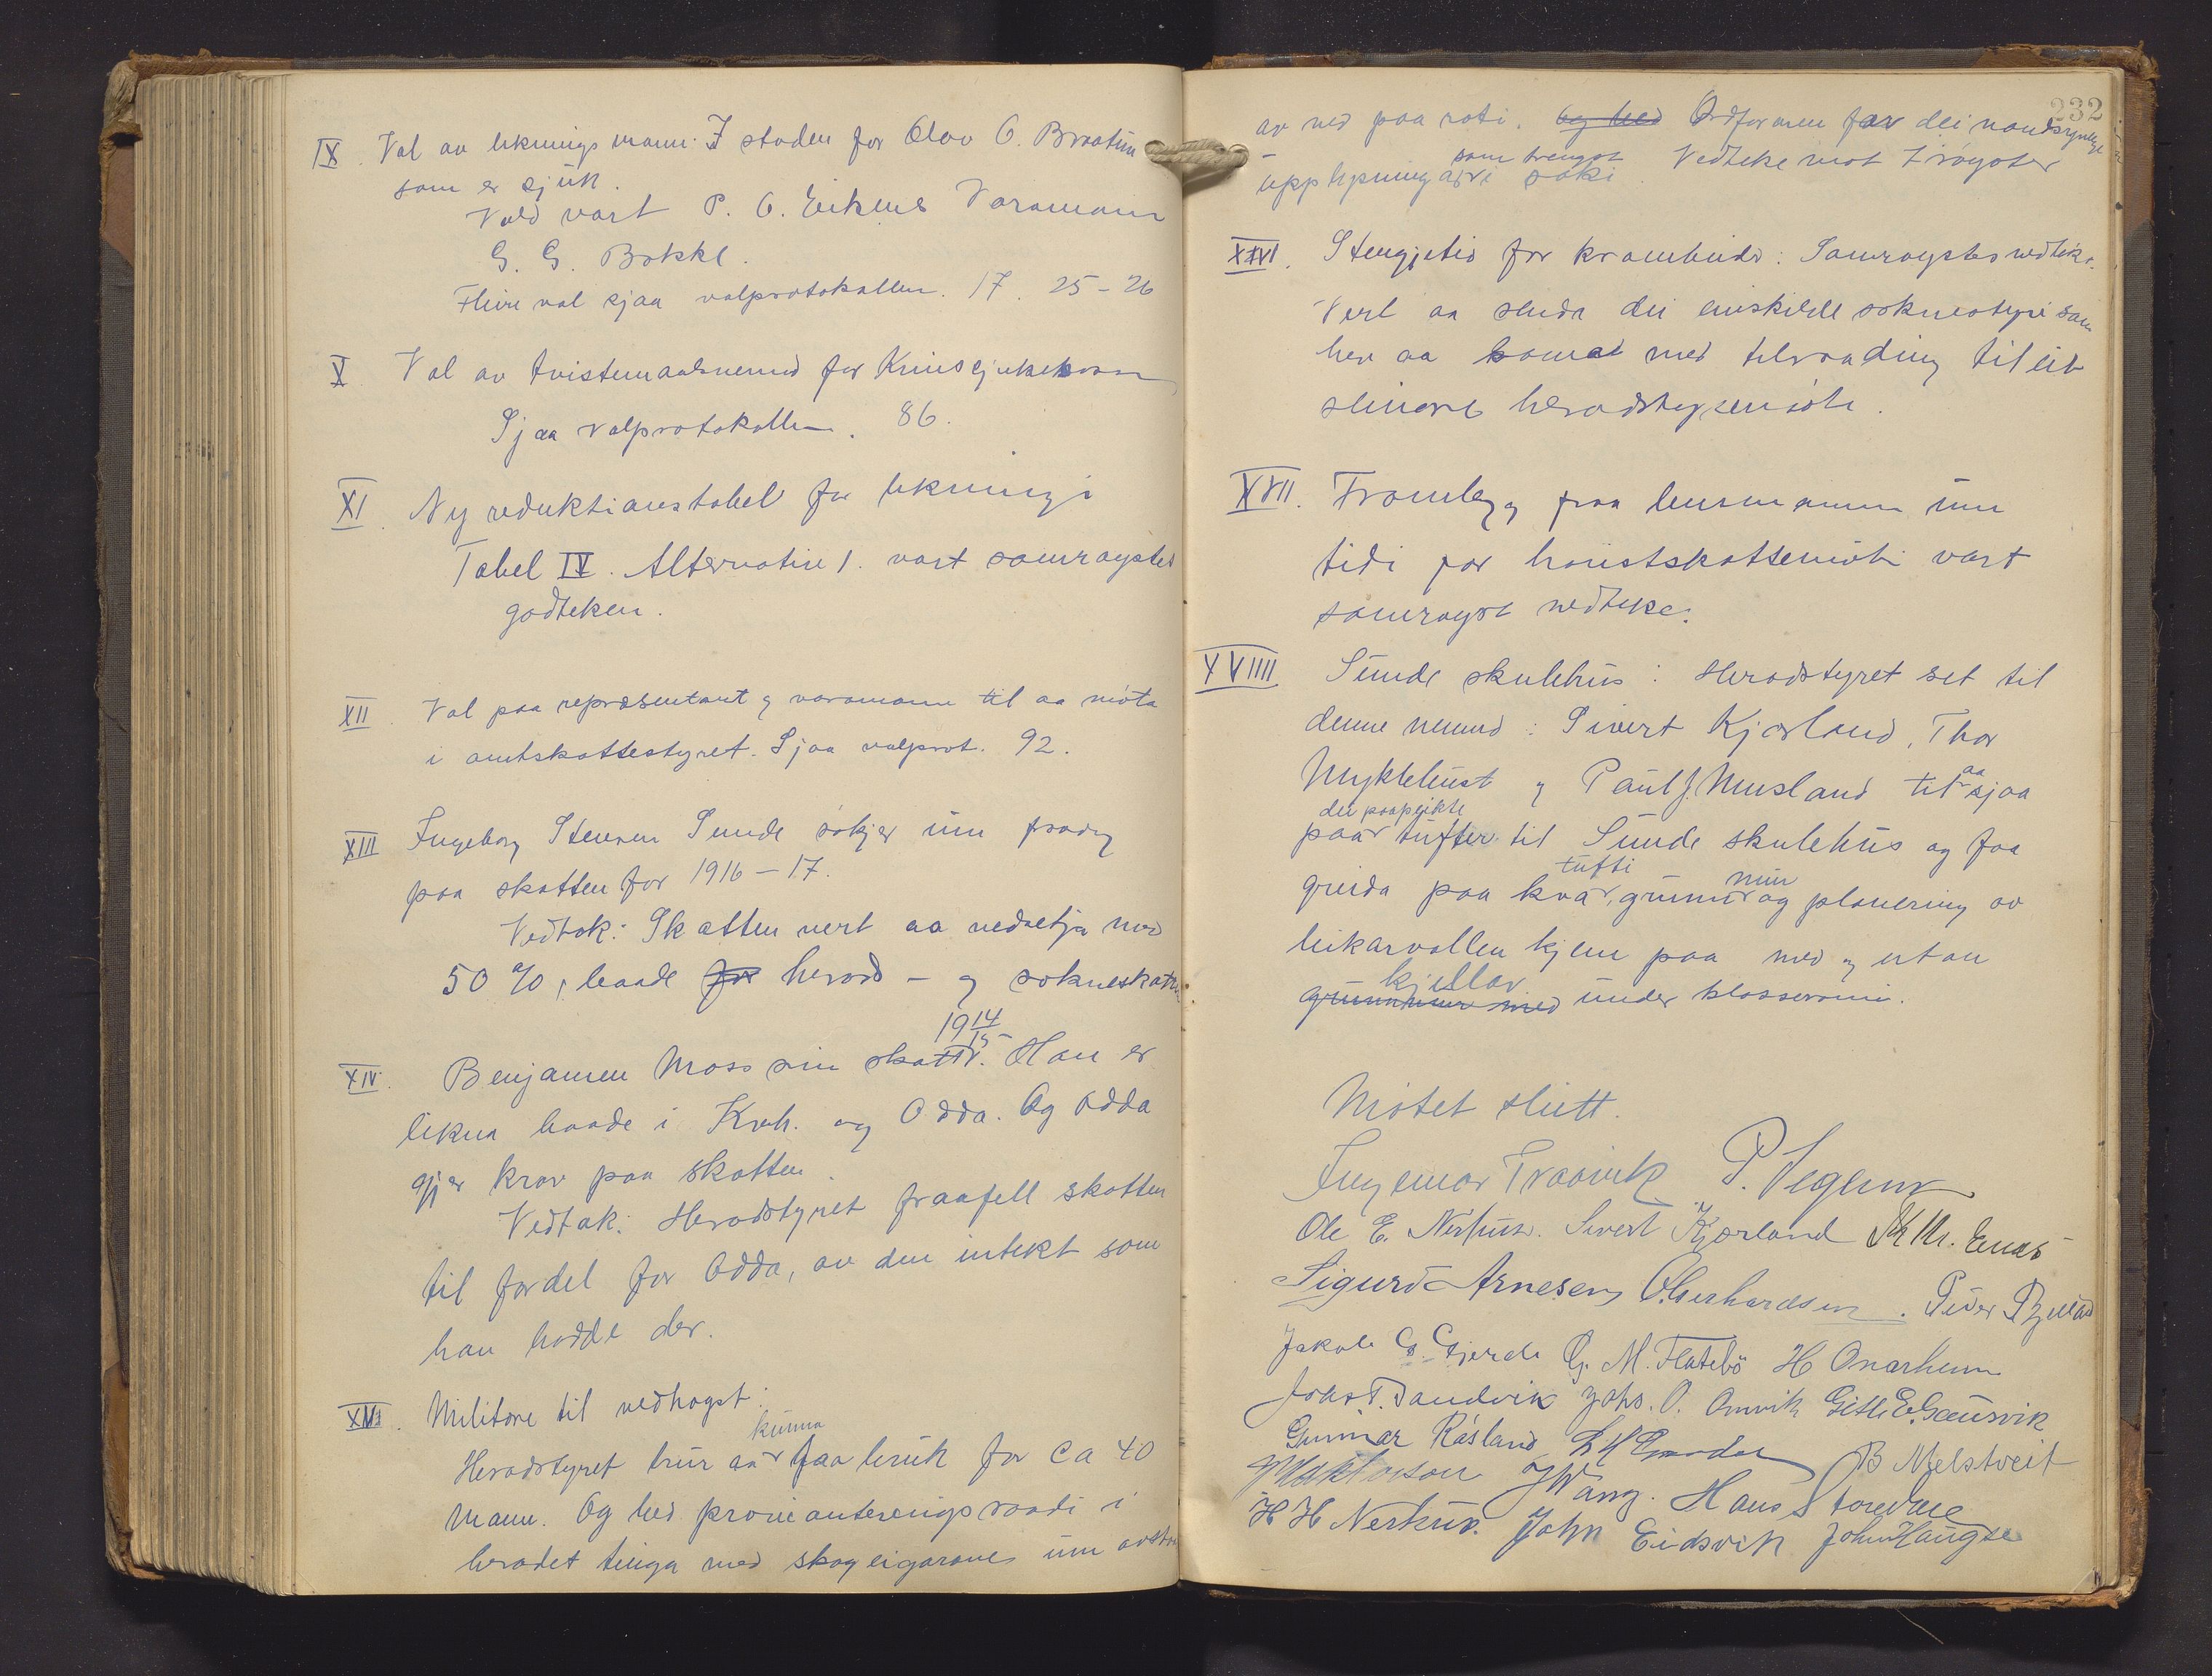 IX. Val av likningsmann: I staden for Olov O. Braatun
som er sjuk.
Vald vart P. O. Eikenes Varamann
G. G. Bakke.
Fleire val sjaa valprotokollen. 17. 25-26
X Val av tvistemaalsnemnd for Krinssjukekassa
Sjaa valprotokollen. 86.
XI. Ny reduktionstabel for likningi
Tabel IV. Alternative 1. vart samrøystes
godteken.
XII. Val paa repræsentant og varamann til aa møta
i amtskattestyret. Sjaa valprot. 92.
XIII Ingeborg Steinsen Sunde søkjer um fradrag
paa skatten for 1916-17.
Vedtak: Skatten vert aa nedsetja med
50 %, baade for herads- og sokneskatten
XIV. Benjamen Moss sin skatt 1914/15. Han er
likna baade i Kvh. og Odda. Og Odda
gjer krav paa skatten.
Vedtak: Heradstyret fraafell skatten
til fordel for Odda, av den intekt som
han hadde der.
XV. Militære til vedhogst:
Heradstyret trur aa kunna faa bruk for ca 40
mann. Og bed provianteringsraadi i
heradet tinga med skogeigarane um
232
av ved paa roti. og bed Ordføraren før dei naudsynlege
upplysningar som trengst i saki. Vedteke mot 7 røyster
XVI. Stengjetid for krambuder: Samrøystes vedteke.
Vert aa senda dei einskilde soknestyri som
hev aa koma med tilraading til eit
seinare heradstyremøte.
XVII. Framlegg fraa lensmannen um
tidi for haustskattemøti vart
samrøyst vedteke.
XVIIII Sunde skulehus: Heradstyret set til
denne nemnd: Sivert Kjærland, Thor
Myklebust og Paul J. Musland til aa sjaa
paa dei paapeikte tufter til Sunde skulehus og faa
greida paa kva tufti, grunnmur og planering av
leikarvollen kjem paa med og utan
grunnmur med kjellar under klasseromi.
Møtet slutt.
Ingemar Traavik P. Vegum
Ole E. Nerhus. Sivert Kjærland
Sigurd Arnesen O. Gerhardsen. Peder
Jakob G. Gjerde G. M. Flatebø H Onarheim
Johs T. Sandvik Johs. O. Omvik Gitle E. Gausvik
Gunnar Røsland B Melstveit
J Wang. Hans Storedale
H H Nerhus. John Eidsvik John Haugse